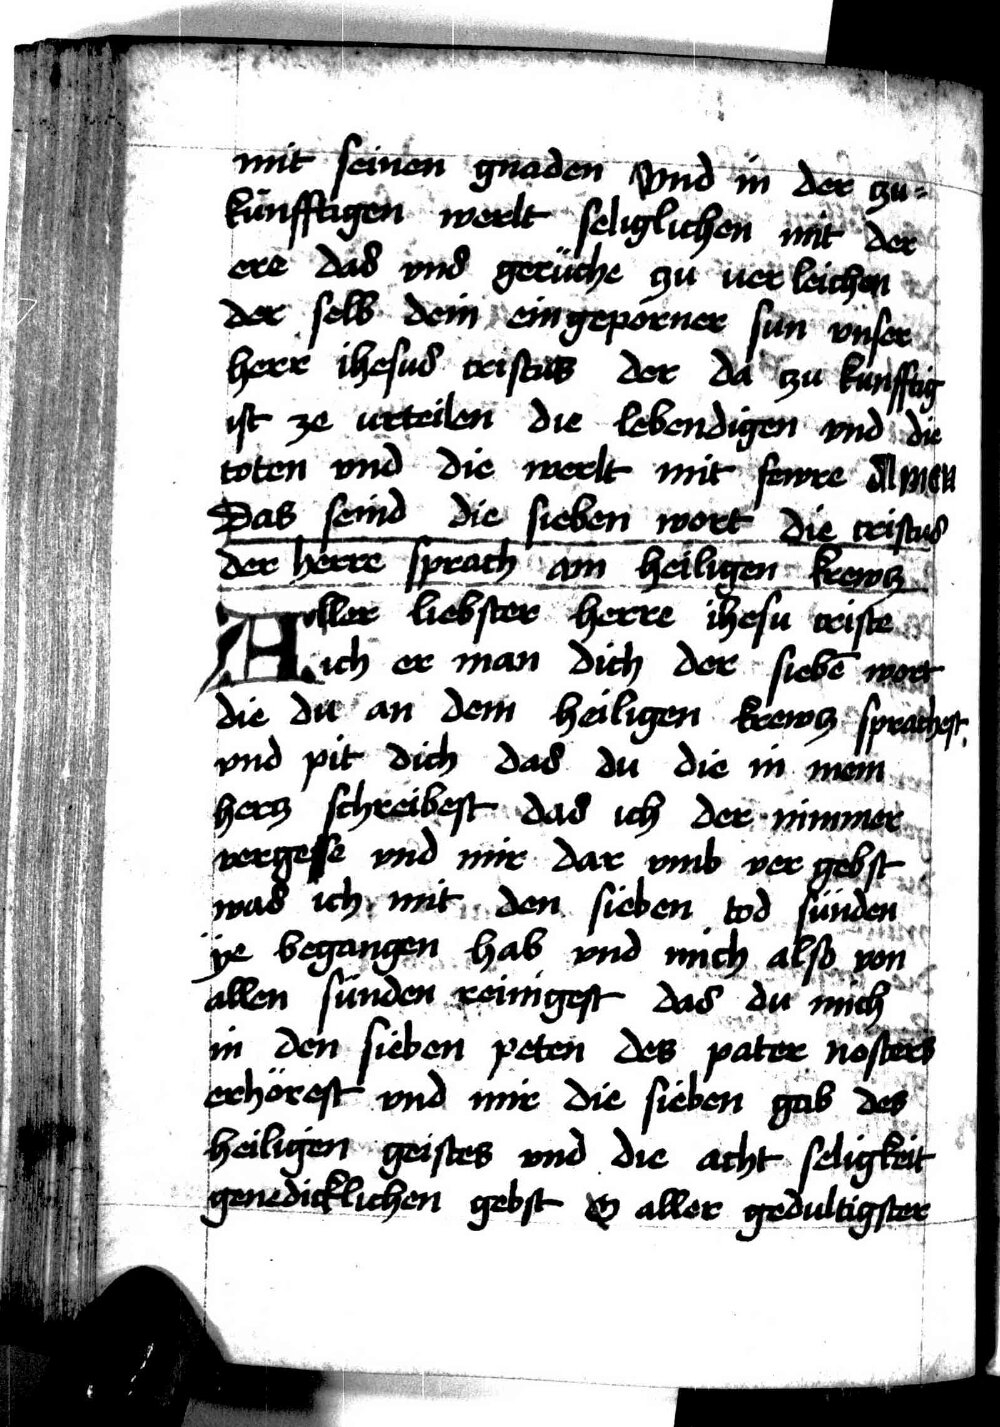 mit seinen gnaden Vnd in der zu=
künfftigen werlt seliglichen mit der
ere das vnd gerüche zu uer leichen
der selb dein eingeporner sun vnser
herr ihesus cristus der da zu künfftig
ist ze urteilen die lebendigen vnd die
toten vnd die werlt mit fewre Amen
Das seind die sieben wort die cristus
der herre sprach am heiligen krewtz
Aller liebster herre ihesu criste
ich er man dich der siebē wort
die du an dem heiligen krewtz sprachest.
vnd pit dich das du die in mein
hertz schreibest das ich der nimmer
vergesse vnd mir dar vmb ver gebst
was ich mit den sieben tod sünden
ye begangen hab vnd mich also von
allen sünden reinigest das du mich
in den sieben peten des pater nosters
erhörest vnd mir die sieben gab des
heiligen geistes vnd die acht seligkeit
genedicklichen gebst O aller gedultigster